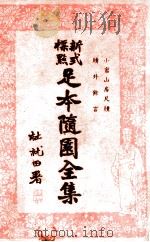 小倉山房尺牘
牘外餘言
新式
標點
足本隨園全集
杜就田署